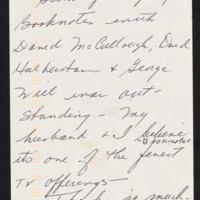 Booknotes with
David McCullough, David
Halberstam & George
Will were out-
standing - My
husband & I believe
Booknotes
its one of the finest
TV offerings -
is much